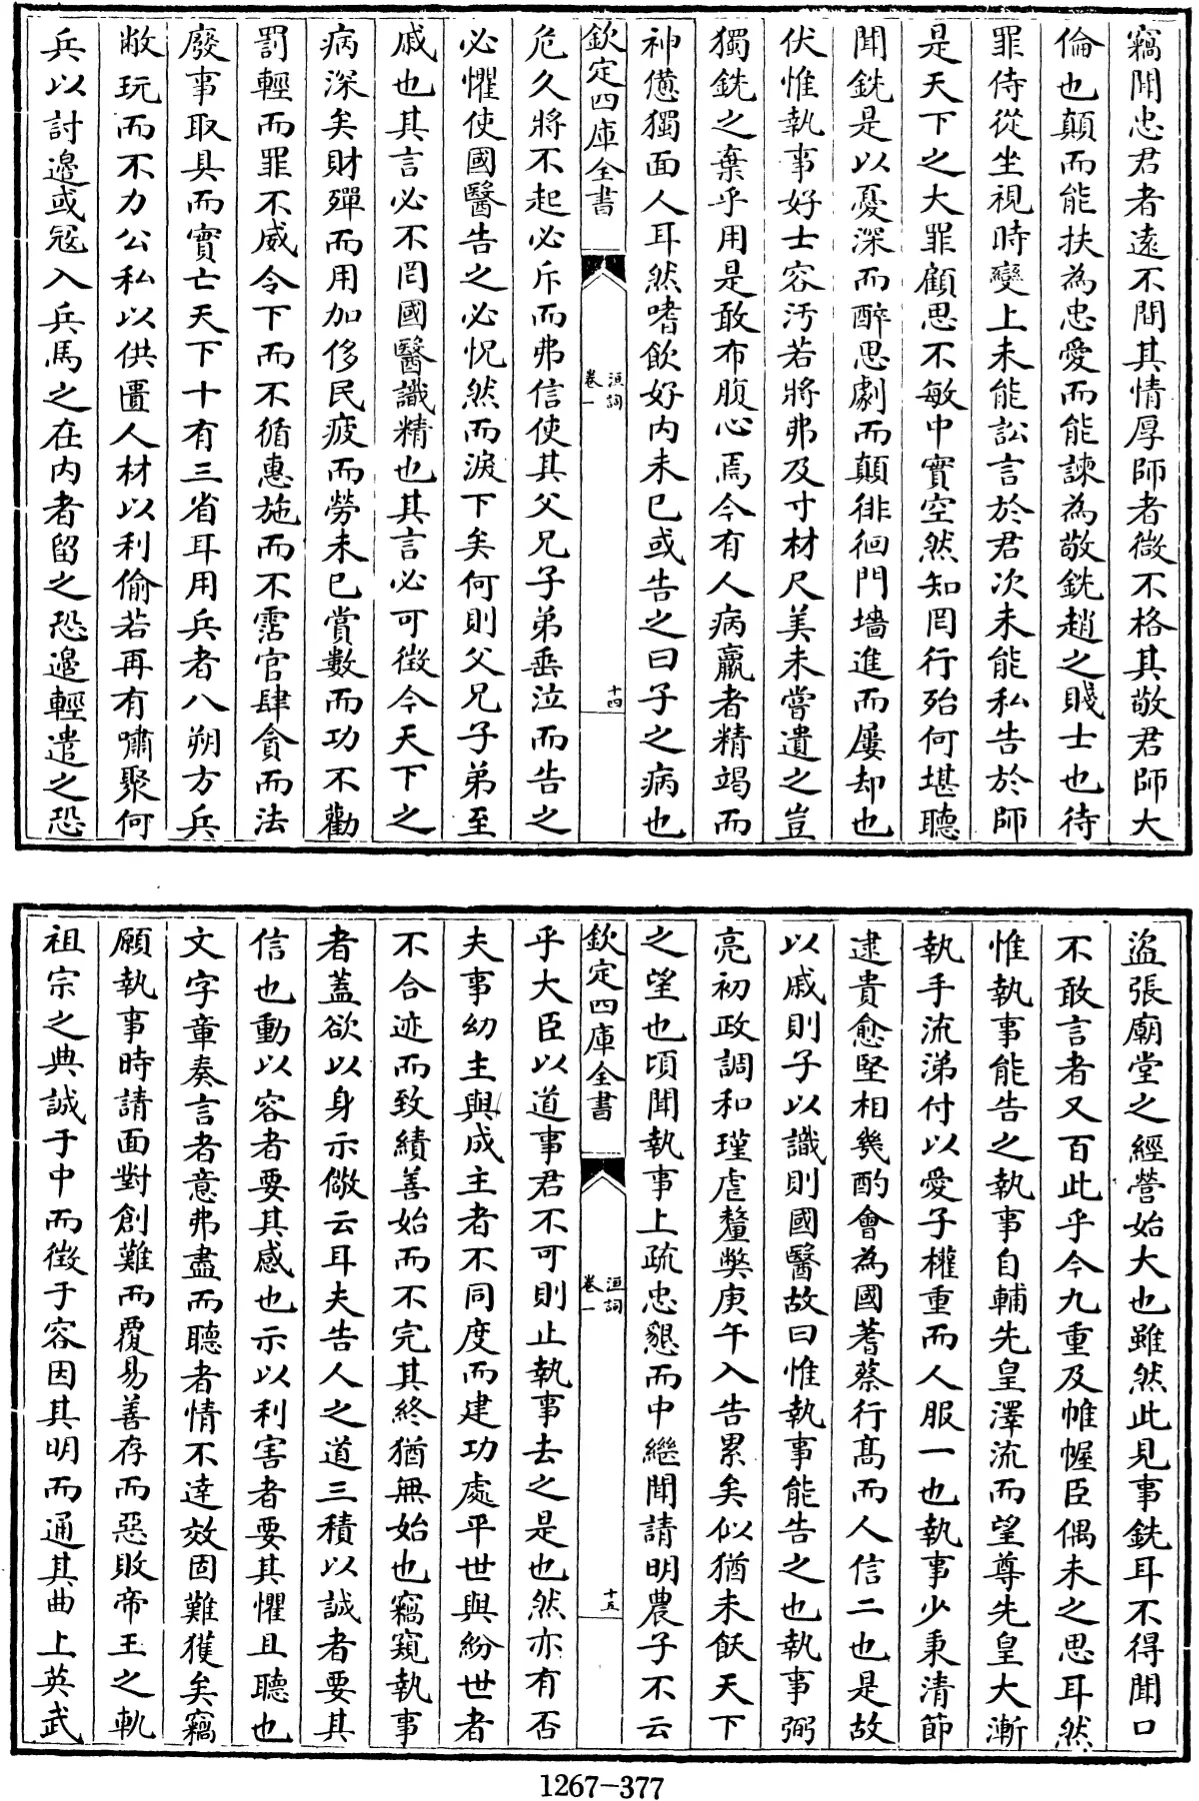 竊聞忠君者遠不間其情厚師者微不格其敬君師大
倫也顛而能扶為忠愛而能諫為敬銑趙之賤士也待
罪侍從坐視時變上未能訟言於君次未能私告於師
是天下之大罪顧思不敏中實空然知罔行殆何堪聽
聞銑是以憂深而醉思劇而顛徘徊門墻進而屢却也
伏惟執事好士容污若將弗及寸材尺美未嘗遺之豈
獨銑之棄乎用是敢布腹心焉今有人病羸者精竭而
神憊獨面人耳然嗜飲好内未已或告之曰子之病也
欽定四庫全書
洹詞
卷一
十四
危久將不起必斥而弗信使其父兄子弟垂泣而告之
必懼使國醫告之必怳然而淚下矣何則父兄子弟至
戚也其言必不罔國醫識精也其言必可徴今天下之
病深矣財殫而用加侈民疲而勞未已賞數而功不勸
罰輕而罪不威令下而不循惠施而不霑官肆貪而法
廢事取具而實亡天下十有三省耳用兵者八朔方兵
敝玩而不力公私以供匱人材以利偷若再有嘯聚何
兵以討邊或宼入兵馬之在内者留之恐邊輕遣之恐
盜張廟堂之經營始大也雖然此見事銑耳不得聞口
不敢言者又百此乎今九重及帷幄臣偶未之思耳然
惟執事能告之執事自輔先皇澤流而望尊先皇大漸
執手流涕付以愛子權重而人服一也執事少秉清節
逮貴愈堅相幾酌會為國蓍蔡行高而人信二也是故
以戚則子以識則國醫故曰惟執事能告之也執事弼
亮初政調和瑾虐釐奬庚午入告累矣似猶未飫天下
之望也頃聞執事上疏忠懇而中繼聞請明農子不云
欽定四庫全書
洹詞
卷一
十五
乎大臣以道事君不可則止執事去之是也然亦有否
夫事幼主與成主者不同度而建功處平世與紛世者
不合迹而致績善始而不完其終猶無始也竊窺執事
者蓋欲以身示儆云耳夫告人之道三積以誠者要其
信也動以容者要其感也示以利害者要其懼且聽也
文字章奏言者意弗盡而聽者情不達效固難獲矣竊
願執事時請面對創難而覆易善存而惡敗帝王之軌
祖宗之典誠于中而徴于容因其明而通其曲上英武
1267-377